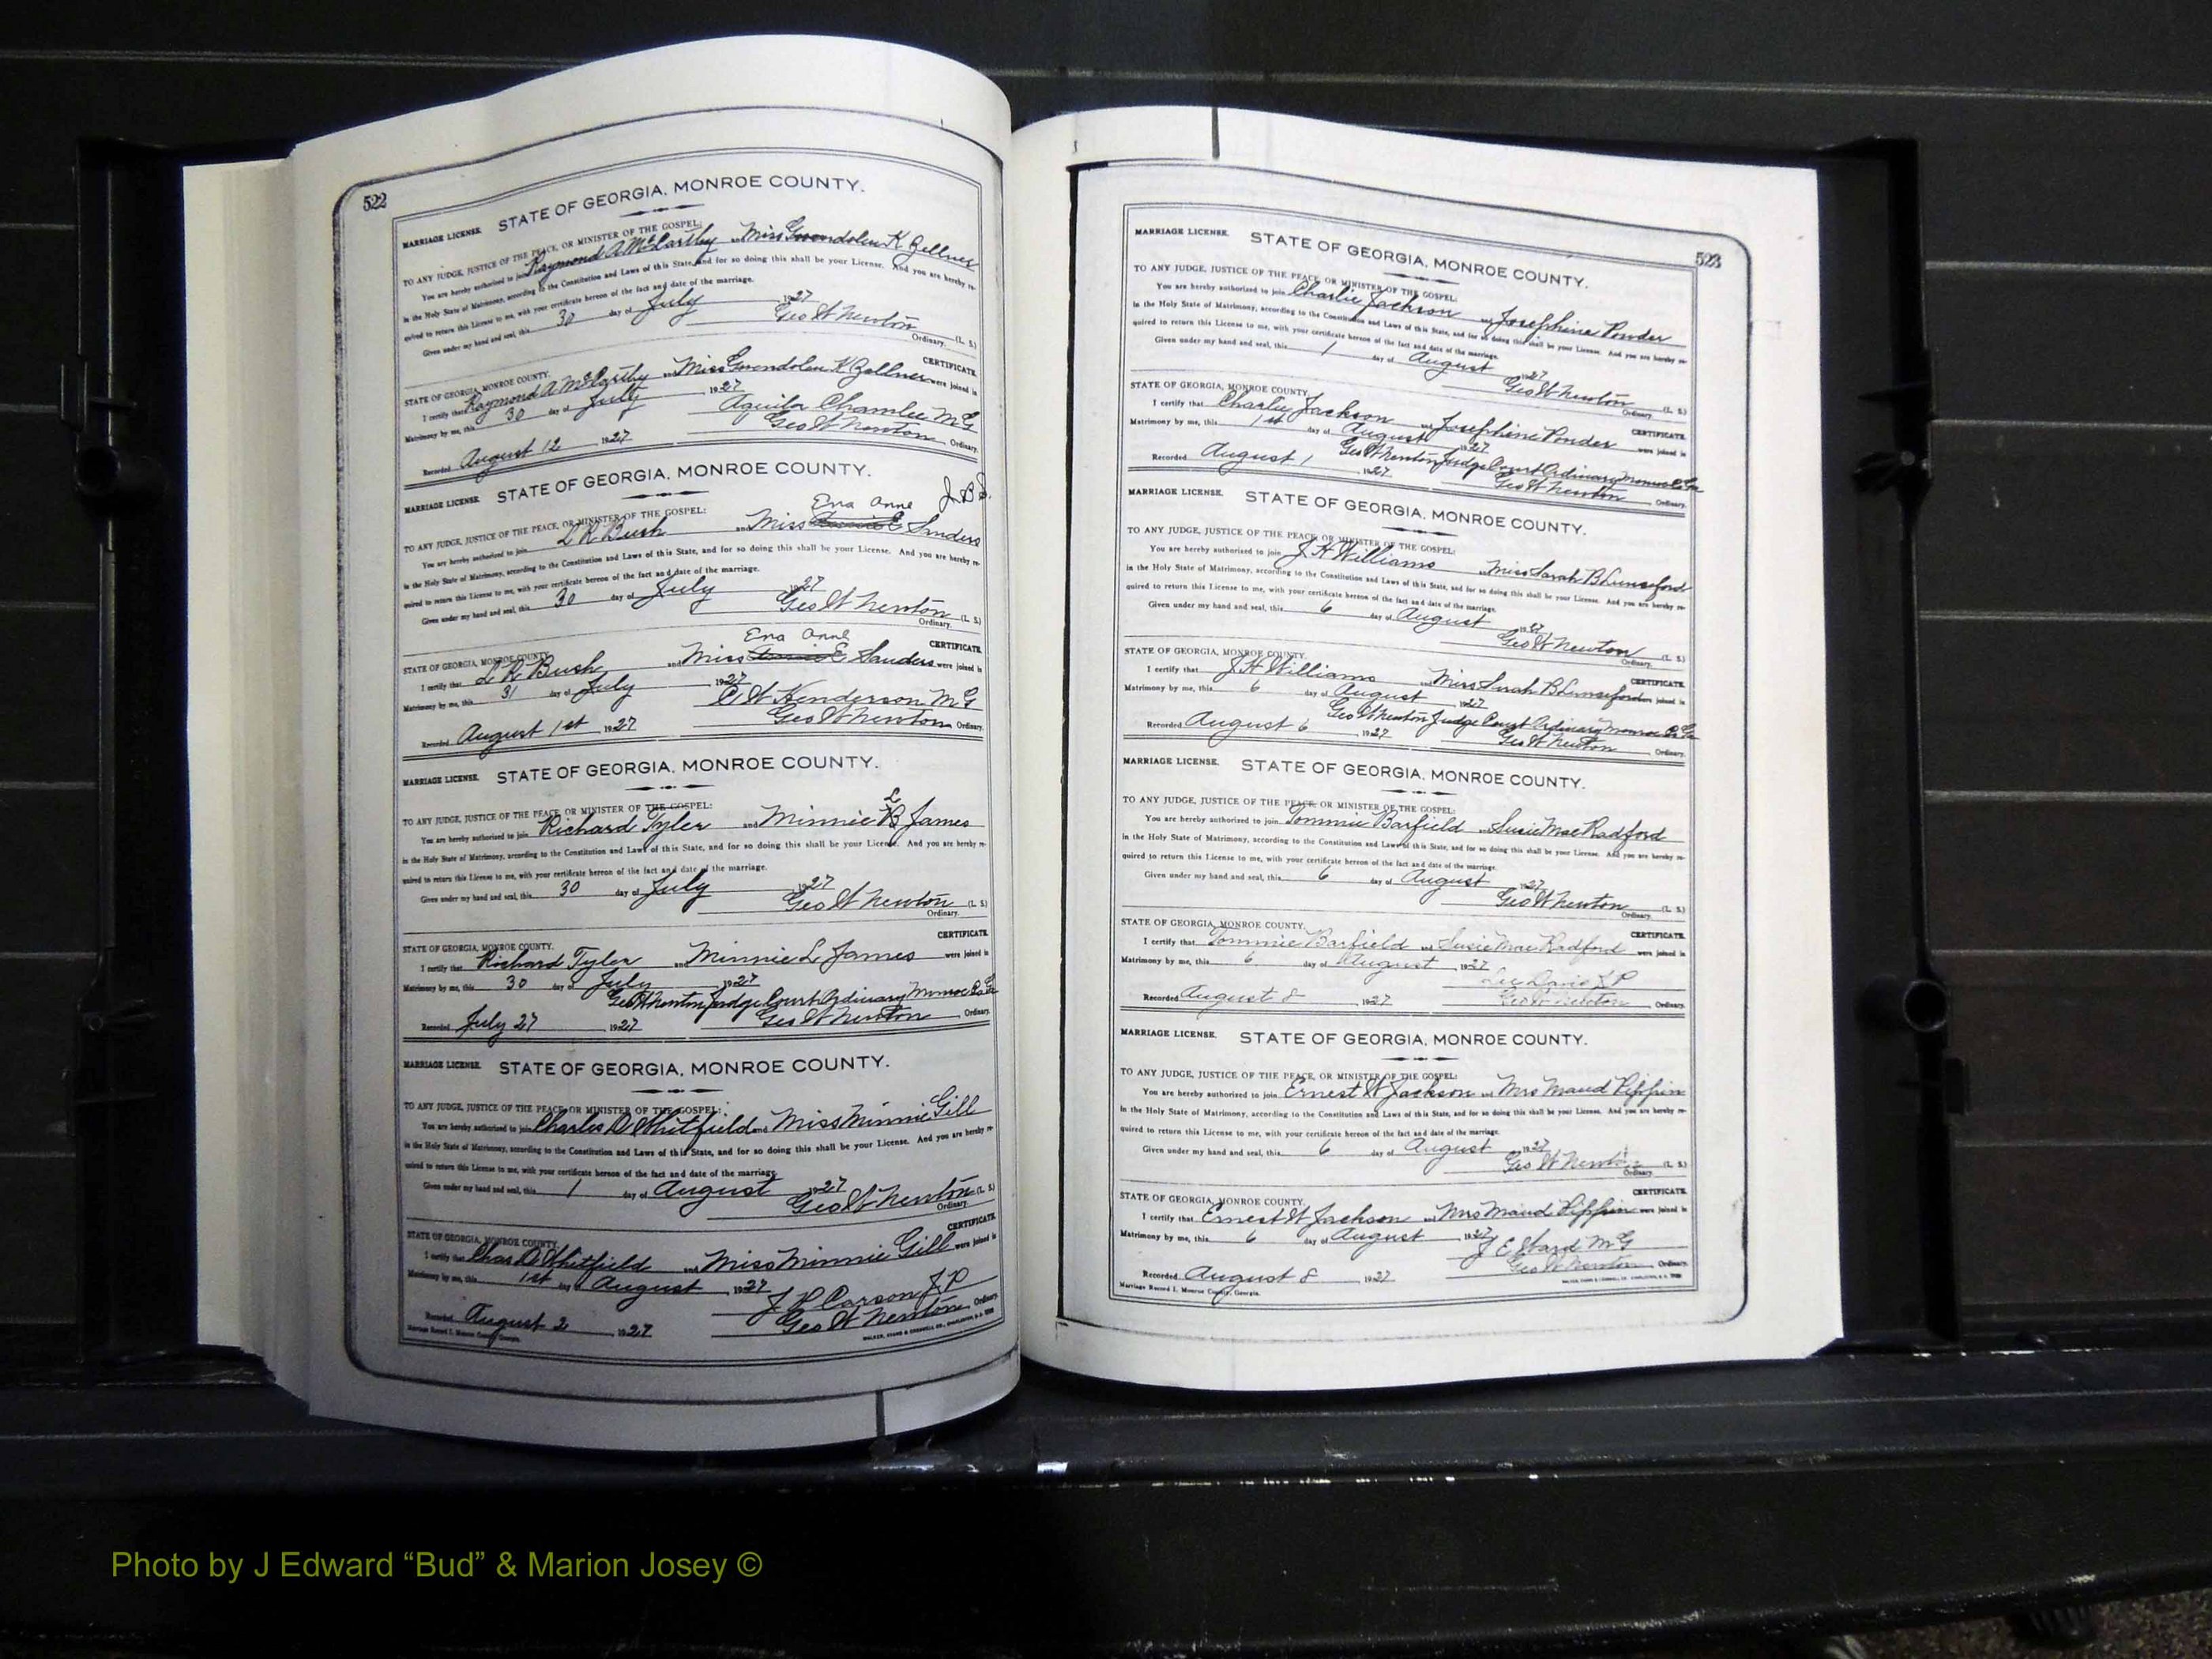 522
STATE OF GEORGIA, MONROE COUNTY.
MARRIAGE LICENSE.
TO ANY JUDGE, JUSTICE OF THE PEACE, OR MINISTER OF THE GOSPEL:
You are hereby authorized to join Raymond A McCarthy and Miss Gwendolen K Zellner
in the Holy State of Matrimony, according to the Constitution and Laws of this State, and for so doing this shall be your License. And you are hereby re-
quired to return this License to me, with your certificate hereon of the fact and date of the marriage.
Given under my hand and seal, this 30 day of July 1927
Geo W Newton (L. S.)
Ordinary.
STATE OF GEORGIA, MONROE COUNTY. CERTIFICATE.
I certify that Raymond A McCarthy and Miss Gwendolen K Zellner were joined in
Matrimony by me, this 30 day of July, 1927
Aquila Chamlee M G
Recorded August 12 1927 Geo W Newton Ordinary.
MARRIAGE LICENSE. STATE OF GEORGIA, MONROE COUNTY.
Ena Anne J.B.S.
TO ANY JUDGE, JUSTICE OF THE PEACE, OR MINISTER OF THE GOSPEL:
You are hereby authorized to join L R Bush and Miss E Sanders
in the Holy State of Matrimony, according to the Constitution and Laws of this State, and for so doing this shall be your License. And you are hereby re-
quired to return this License to me, with your certificate hereon of the fact and date of the marriage.
Given under my hand and seal, this 30 day of July 1927
Geo W Newton (L. S.)
Ordinary.
Ena Anne
STATE OF GEORGIA, MONROE COUNTY. CERTIFICATE.
I certify that L R Bush and Miss E Sanders were joined in
Matrimony by me, this 31 day of July, 1927
C W Henderson M G
Recorded August 1st 1927 Geo W Newton Ordinary.
MARRIAGE LICENSE. STATE OF GEORGIA, MONROE COUNTY.
TO ANY JUDGE, JUSTICE OF THE PEACE, OR MINISTER OF THE GOSPEL:
L
You are hereby authorized to join Richard Tyler and Minnie B James
in the Holy State of Matrimony, according to the Constitution and Laws of this State, and for so doing this shall be your License. And you are hereby re-
quired to return this License to me, with your certificate hereon of the fact and date of the marriage.
Given under my hand and seal, this 30 day of July 1927
Geo W Newton (L. S.)
Ordinary.
CERTIFICATE.
STATE OF GEORGIA, MONROE COUNTY.
I certify that Richard Tyler and Minnie L James were joined in
Matrimony by me, this 30 day of July, 1927
Geo W Newton Judge Court Ordinary Monroe Co Ga
Recorded July 27 1927 Geo W Newton Ordinary.
MARRIAGE LICENSE. STATE OF GEORGIA, MONROE COUNTY.
TO ANY JUDGE, JUSTICE OF THE PEACE, OR MINISTER OF THE GOSPEL:
You are hereby authorized to join Charles D Whitfield and Miss Minnie Gill
in the Holy State of Matrimony, according to the Constitution and Laws of this State, and for so doing this shall be your License. And you are hereby re-
quired to return this License to me, with your certificate hereon of the fact and date of the marriage.
Given under my hand and seal, this 1 day of August 1927
Geo W Newton (L. S.)
Ordinary.
CERTIFICATE.
STATE OF GEORGIA, MONROE COUNTY.
I certify that Chas D Whitfield and Miss Minnie Gill were joined in
Matrimony by me, this 1st day of August, 1927
J R Carson J P
Recorded August 2, 1927 Geo W Newton, Ordinary.
Marriage Record I, Monroe County, Georgia. WALKER, EVANS & COGSWELL CO., CHARLESTON, S. C.
523
MARRIAGE LICENSE. STATE OF GEORGIA, MONROE COUNTY.
TO ANY JUDGE, JUSTICE OF THE PEACE, OR MINISTER OF THE GOSPEL:
You are hereby authorized to join Charlie Jackson and Josephine Ponder
in the Holy State of Matrimony, according to the Constitution and Laws of this State, and for so doing this shall be your License. And you are hereby re-
quired to return this License to me, with your certificate hereon of the fact and date of the marriage.
Given under my hand and seal, this 1 day of August 1927
Geo W Newton (L. S.)
Ordinary.
STATE OF GEORGIA, MONROE COUNTY. CERTIFICATE.
I certify that Charlie Jackson and Josephine Ponder were joined in
Matrimony by me, this 1st day of August, 1927
Geo W Newton Judge Court Ordinary Monroe Co Ga
Recorded August 1, 1927 Geo W Newton, Ordinary.
MARRIAGE LICENSE. STATE OF GEORGIA, MONROE COUNTY.
TO ANY JUDGE, JUSTICE OF THE PEACE, OR MINISTER OF THE GOSPEL:
You are hereby authorized to join J H Williams and Miss Sarah B Lunceford
in the Holy State of Matrimony, according to the Constitution and Laws of this State, and for so doing this shall be your License. And you are hereby re-
quired to return this License to me, with your certificate hereon of the fact and date of the marriage.
Given under my hand and seal, this 6 day of August 1927
Geo W Newton (L. S.)
Ordinary.
STATE OF GEORGIA, MONROE COUNTY. CERTIFICATE.
I certify that J H Williams and Miss Sarah B Lunceford were joined in
Matrimony by me, this 6 day of August, 1927
Geo W Newton Judge Court Ordinary Monroe Co Ga
Recorded August 6, 1927 Geo W Newton, Ordinary.
MARRIAGE LICENSE. STATE OF GEORGIA, MONROE COUNTY.
TO ANY JUDGE, JUSTICE OF THE PEACE, OR MINISTER OF THE GOSPEL:
You are hereby authorized to join Tommie Barfield and Susie Mae Radford
in the Holy State of Matrimony, according to the Constitution and Laws of this State, and for so doing this shall be your License. And you are hereby re-
quired to return this License to me, with your certificate hereon of the fact and date of the marriage.
Given under my hand and seal, this 6 day of August 1927
Geo W Newton (L. S.)
Ordinary.
STATE OF GEORGIA, MONROE COUNTY. CERTIFICATE.
I certify that Tommie Barfield and Susie Mae Radford were joined in
Matrimony by me, this 6 day of August, 1927
Lee Davis J P
Recorded August 8, 1927 Geo W Newton, Ordinary.
MARRIAGE LICENSE. STATE OF GEORGIA, MONROE COUNTY.
TO ANY JUDGE, JUSTICE OF THE PEACE, OR MINISTER OF THE GOSPEL:
You are hereby authorized to join Ernest W Jackson and Mrs Maud Pippin
in the Holy State of Matrimony, according to the Constitution and Laws of this State, and for so doing this shall be your License. And you are hereby re-
quired to return this License to me, with your certificate hereon of the fact and date of the marriage.
Given under my hand and seal, this 6 day of August 1927
Geo W Newton (L. S.)
Ordinary.
CERTIFICATE.
STATE OF GEORGIA, MONROE COUNTY.
I certify that Ernest W Jackson and Mrs Maud Pippin were joined in
Matrimony by me, this 6 day of August, 1927
J E Ward M G
Recorded August 8, 1927 Geo W Newton, Ordinary.
Marriage Record I, Monroe County, Georgia. WALKER, EVANS & COGSWELL CO., CHARLESTON, S. C.
Photo by J Edward “Bud” & Marion Josey ©